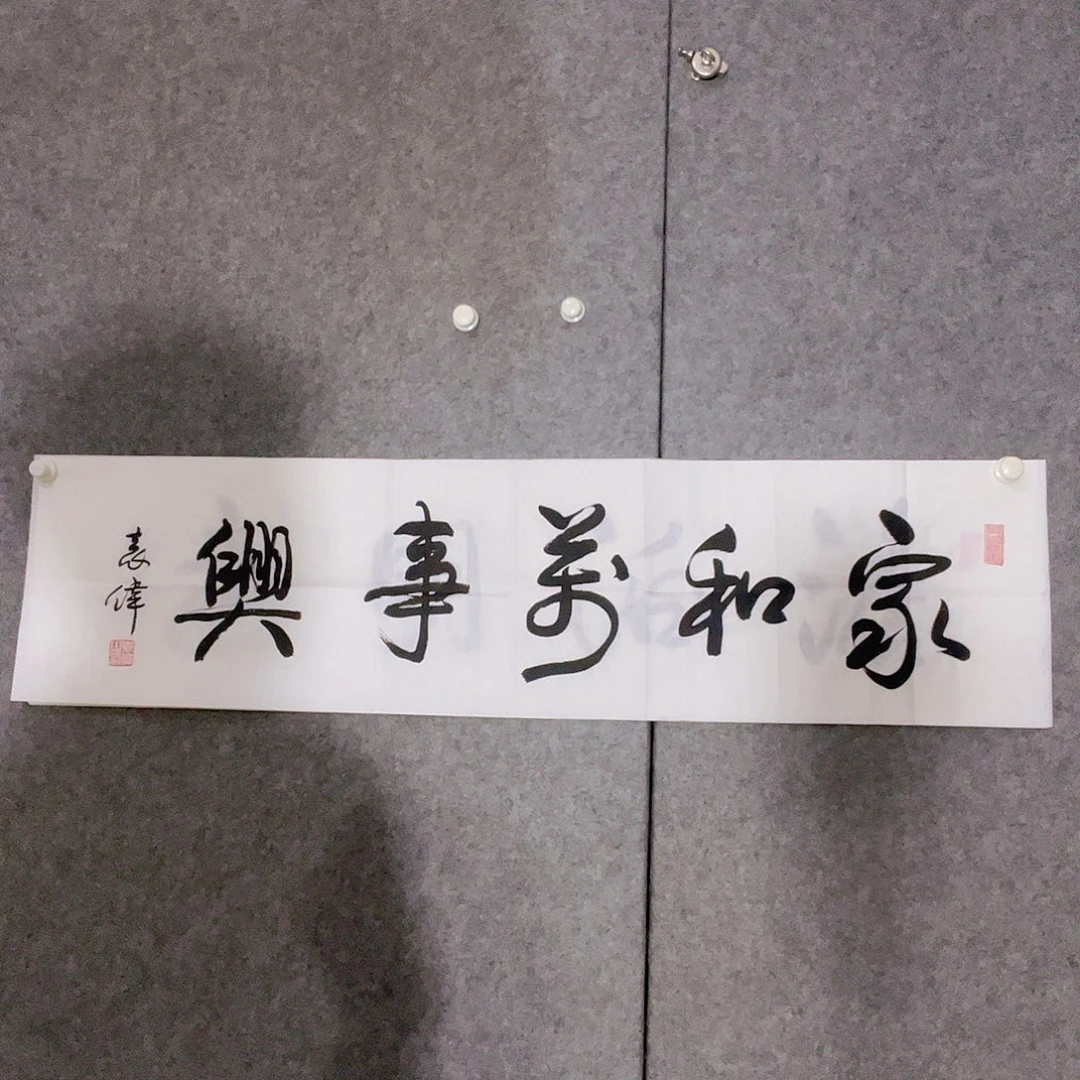 家和萬事興
袁偉